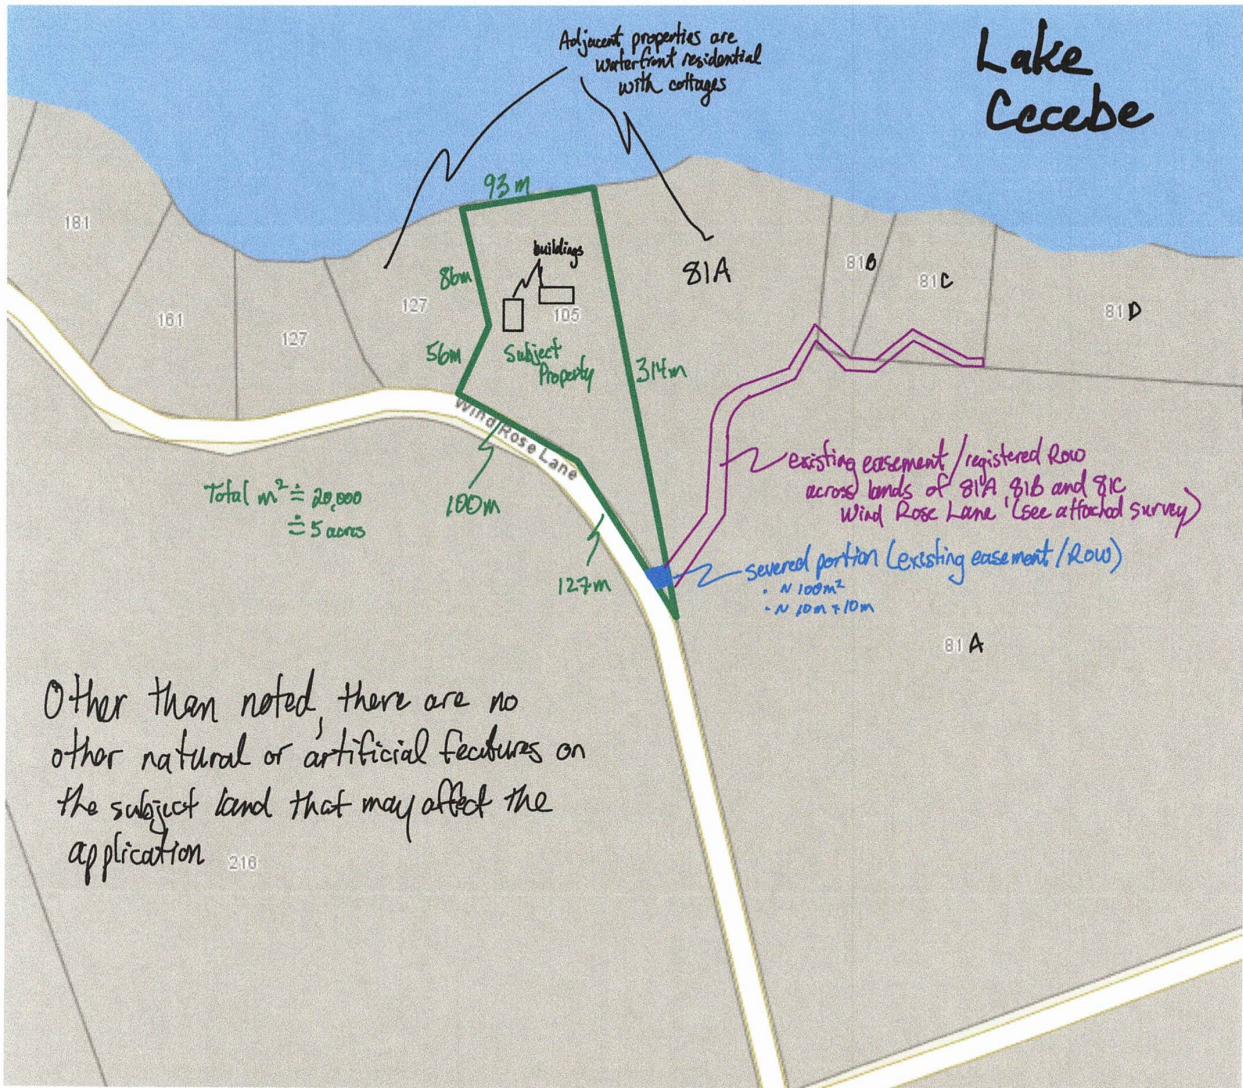 Adjacent properties are
waterfront residential
with cottages
Lake
Cecebe
181
161
127
127
93 m
86m
56m
buildings
105
Subject
Property
314m
81A
81B
81C
81D
Wind Rose Lane
100m
127m
Total m² ≐ 20,000
≐ 5 acres
existing easement/registered Row
across lands of 81A 81B and 81C
Wind Rose Lane (see attached survey)
severed portion (existing easement/Row)
· ~ 100m²
· ~ 10m × 10m
81 A
Other than noted, there are no
other natural or artificial features on
the subject land that may affect the
application
216